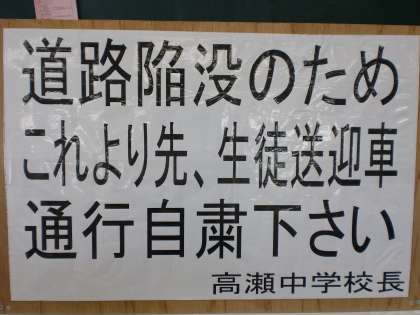 道路陥没のため
これより先、生徒送迎車
通行自粛下さい
高瀬中学校長